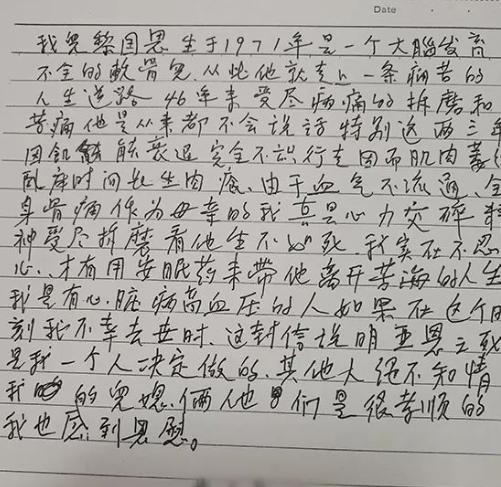 Date
我兒黎国恩生于1971年是一个大腦发育
不全的軟骨兒.从此他就走上一条痛苦的
人生道路 46年来受尽病痛的折磨和
苦痛他是从来都不会说话特别这两三年
因机能衰退完全不识行走因而肌肉萎
臥床时间长生肉瘡.由于血气不流通、全
身骨痛作为母亲的我真是心力交碎精
神受尽折磨看他生不如死.我实在不忍
心.才有用安眠药来帶他离开苦海的人生
我是有心.脏病高血压的人如果在这个时
刻我不幸去世时.这封信说明亚恩之死
是我一个人决定做的.其他人絕不知情
我的兒媳俩他们是很孝順的
我也感到恩慰。